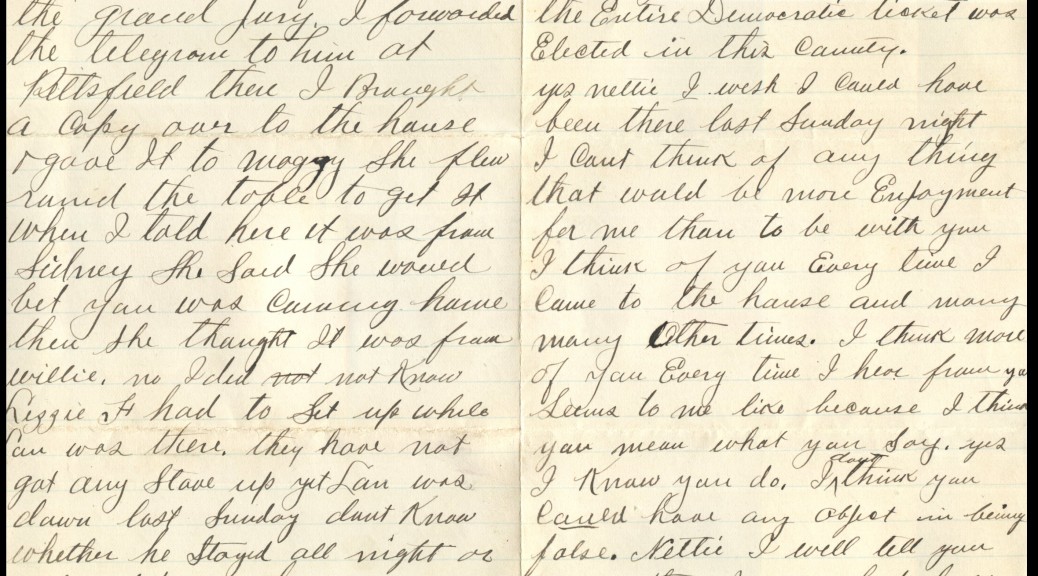 the grand Jury. I forwarded
the telegram to him at
Pittsfield then I Braught
a Copy over to the hause
& gave It to maggy She flew
raund the table to get It
when I told here it was fram
Sidney She Said She would
bet you was Caming hame
then She thaught It was fram
willie. no I did not not Know
Lizzie H had to Set up while
Lan was there. they have not
gat any Stave up yet Lan was
dawn last Sunday dant Know
whether he Stayed all night or
the Entire Democratic ticket was
Elected in this Caunty.
yes nettie I wish I Cauld have
been there last Sunday night
I Cant think of any thing
that would be more Enjoyment
for me than to be with you
I think of you Every time I
Came to the hause and many
many Other times. I think more
of you Every time I hear from you
Seems to me like because I think
you mean what you Say. yes
I Know you do. I dant think you
Cauld have any Object in being
false. Nettie I will tell you